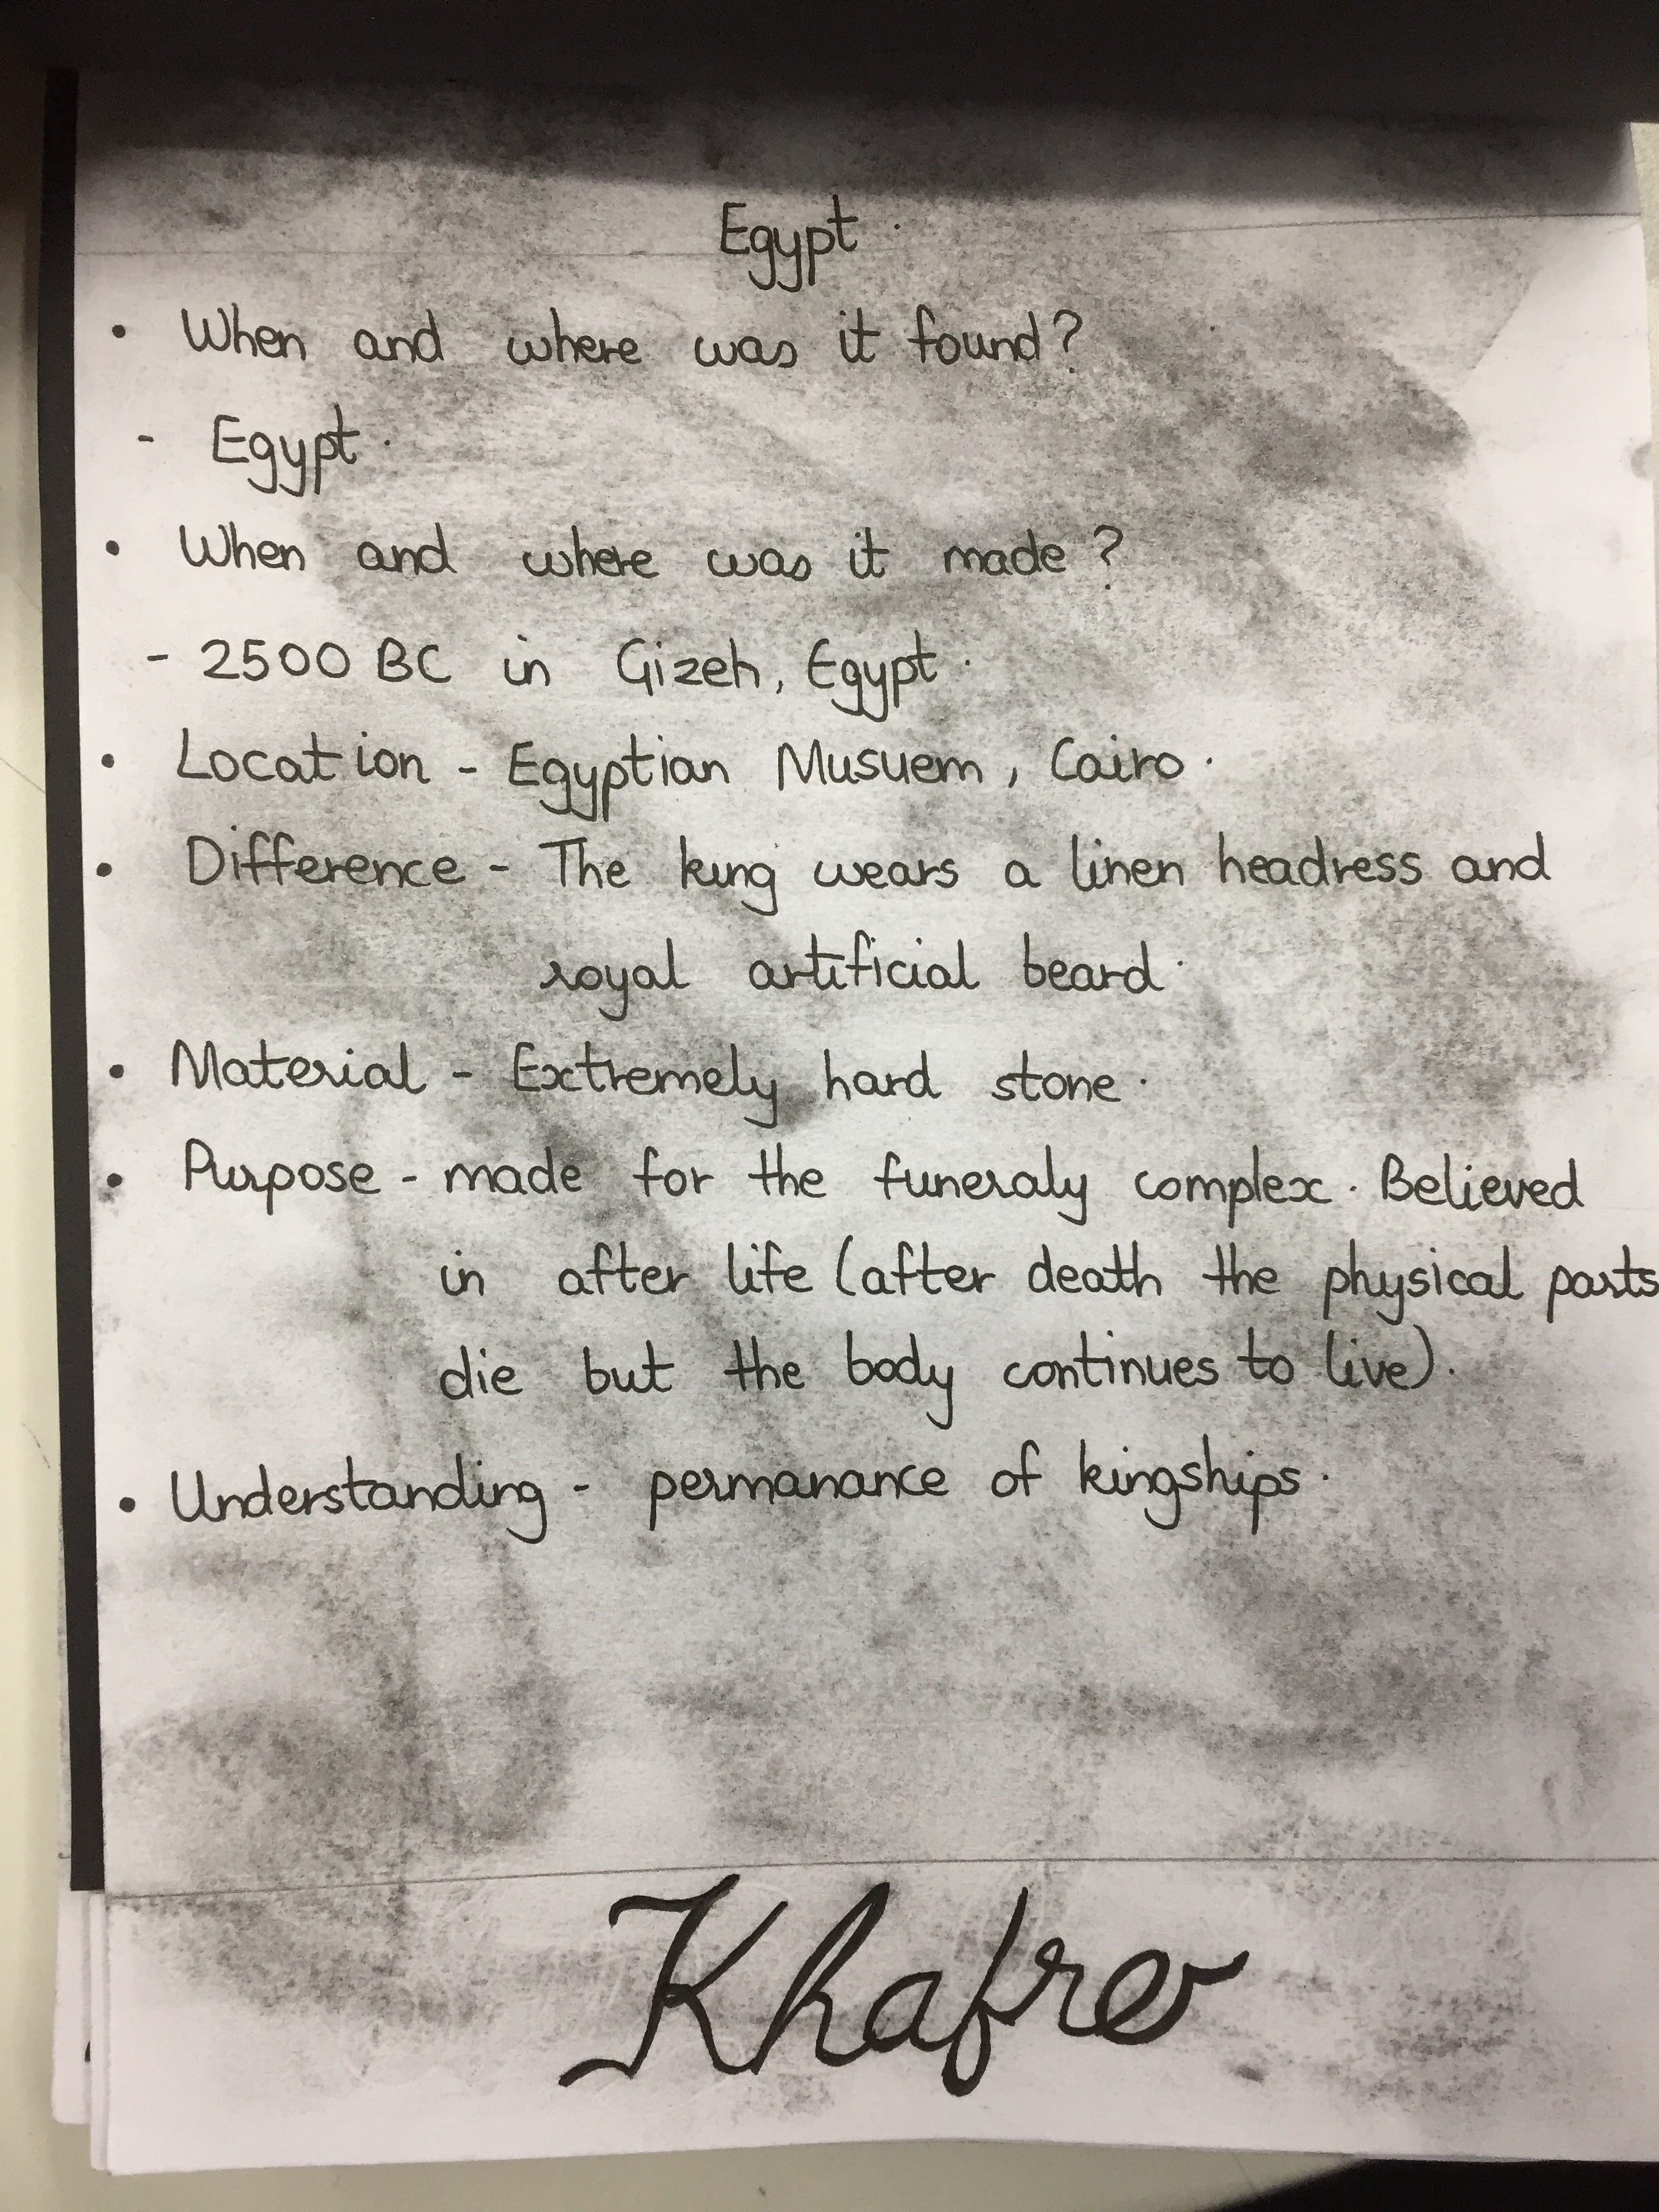 Egypt.
• When and where was it found?
- Egypt.
• When and where was it made?
- 2500 BC in Gizeh, Egypt.
• Location - Egyptian Musuem, Cairo.
• Difference - The king wears a linen headress and
royal artificial beard.
• Material - Extremely hard stone.
• Purpose - made for the funeraly complex. Believed
in after life (after death the physical parts
die but the body continues to live).
• Understanding - permanance of kingships.
Khafre